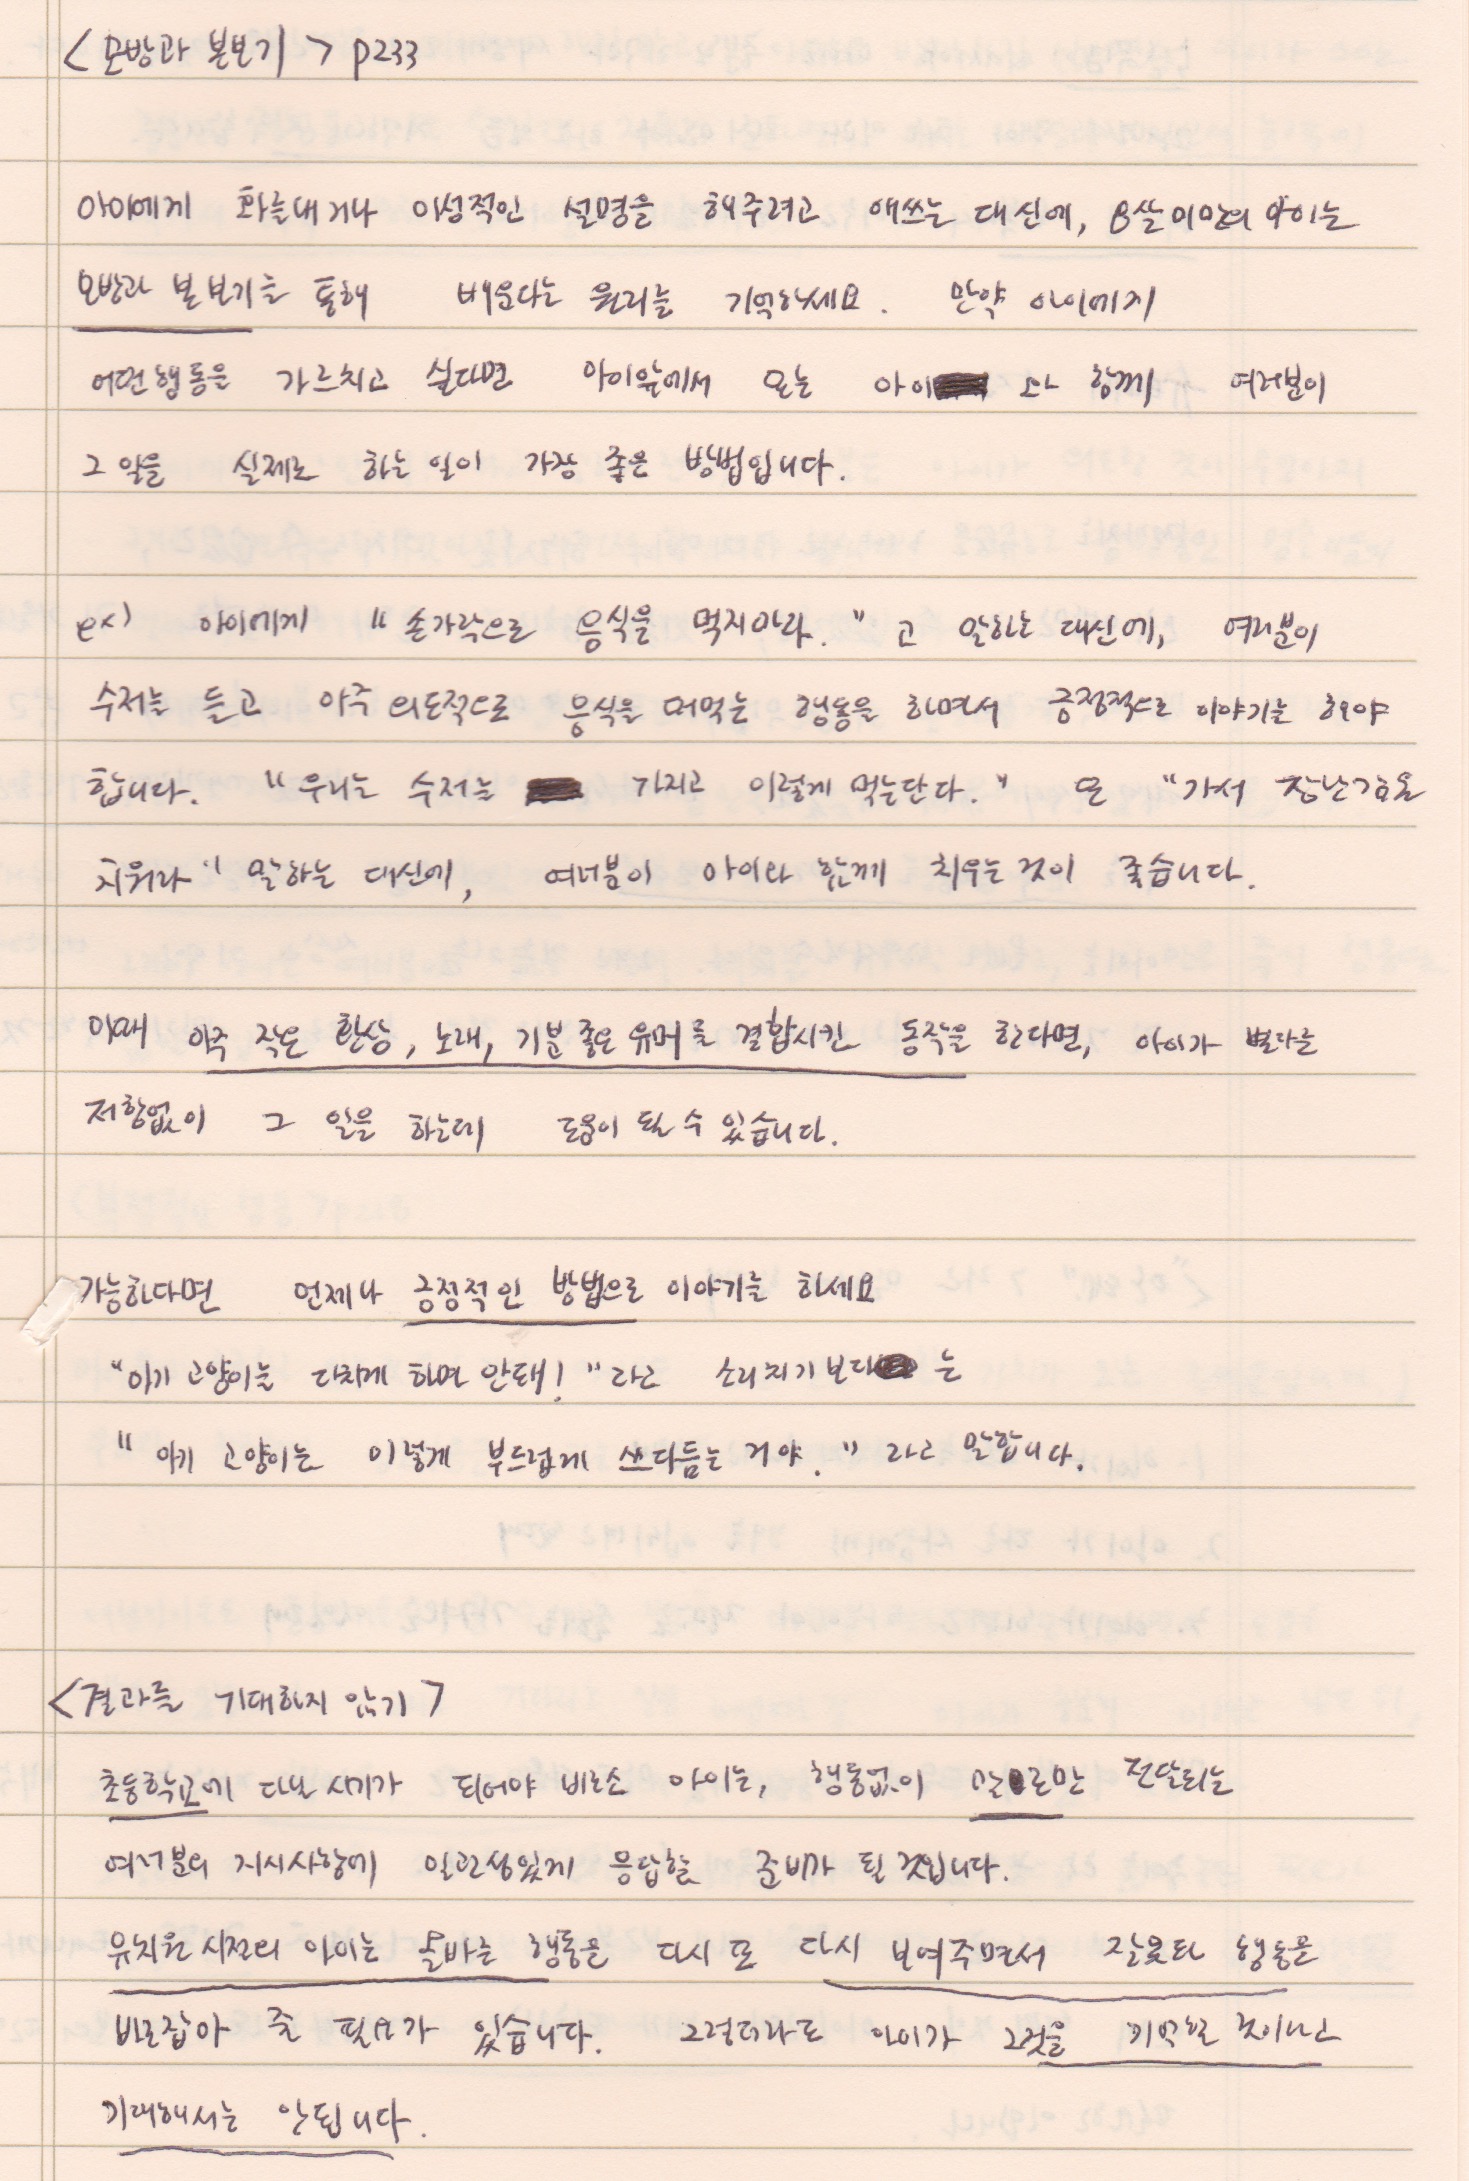 <모방과 본보기> p233
아이에게 화를내거나 이성적인 설명을 해주려고 애쓰는 대신에, 8살미만의 아이는
모방과 본보기를 통해 배운다는 원리를 기억하세요. 만약 아이에게
어떤행동을 가르치고 싶다면 아이앞에서 또는 아이 와 함께 여러분이
그 일을 실제로 하는 일이 가장 좋은 방법입니다.
ex) 아이에게 "손가락으로 음식을 먹지마라."고 말하는 대신에, 여러분이
수저를 들고 아주 의도적으로 음식을 떠먹는 행동을 하면서 긍정적으로 이야기를 해야
합니다. "우리는 수저를 가지고 이렇게 먹는단다." 또 "가서 장난감을
치워라" 말하는 대신에, 여러분이 아이와 함께 치우는것이 좋습니다.
이때 아주 작은 환상, 노래, 기분 좋은 유머를 결합시킨 동작을 한다면, 아이가 별다른
저항없이 그 일을 하는데 도움이 될 수 있습니다.
가능하다면 언제나 긍정적인 방법으로 이야기를 하세요
"아기 고양이를 다치게 하면 안돼!"라고 소리치기보다 는
"아기 고양이는 이렇게 부드럽게 쓰다듬는 거야." 라고 말합니다.
<결과를 기대하지 않기>
초등학교에 다닐 시기가 되어야 비로소 아이는, 행동없이 말로만 전달되는
여러분의 지시사항에 일관성있게 응답할 준비가 될 것입니다.
유치원 시절의 아이는 올바른 행동을 다시 또 다시 보여주면서 잘못된 행동을
바로잡아 줄 필요가 있습니다. 그렇더라도 아이가 그것을 기억할 것이라고
기대해서는 안됩니다.